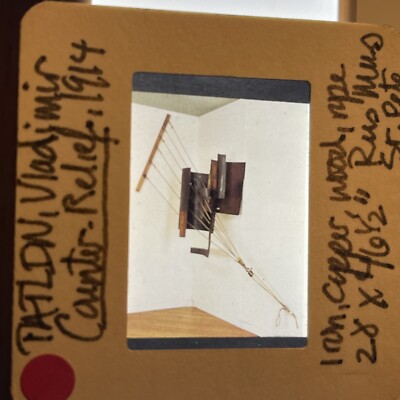 TATLIN, Vladimir
Counter-Relief: 1914
Iron, copper, wood, rope
28 x 46½" Rus Mus
St. Pete